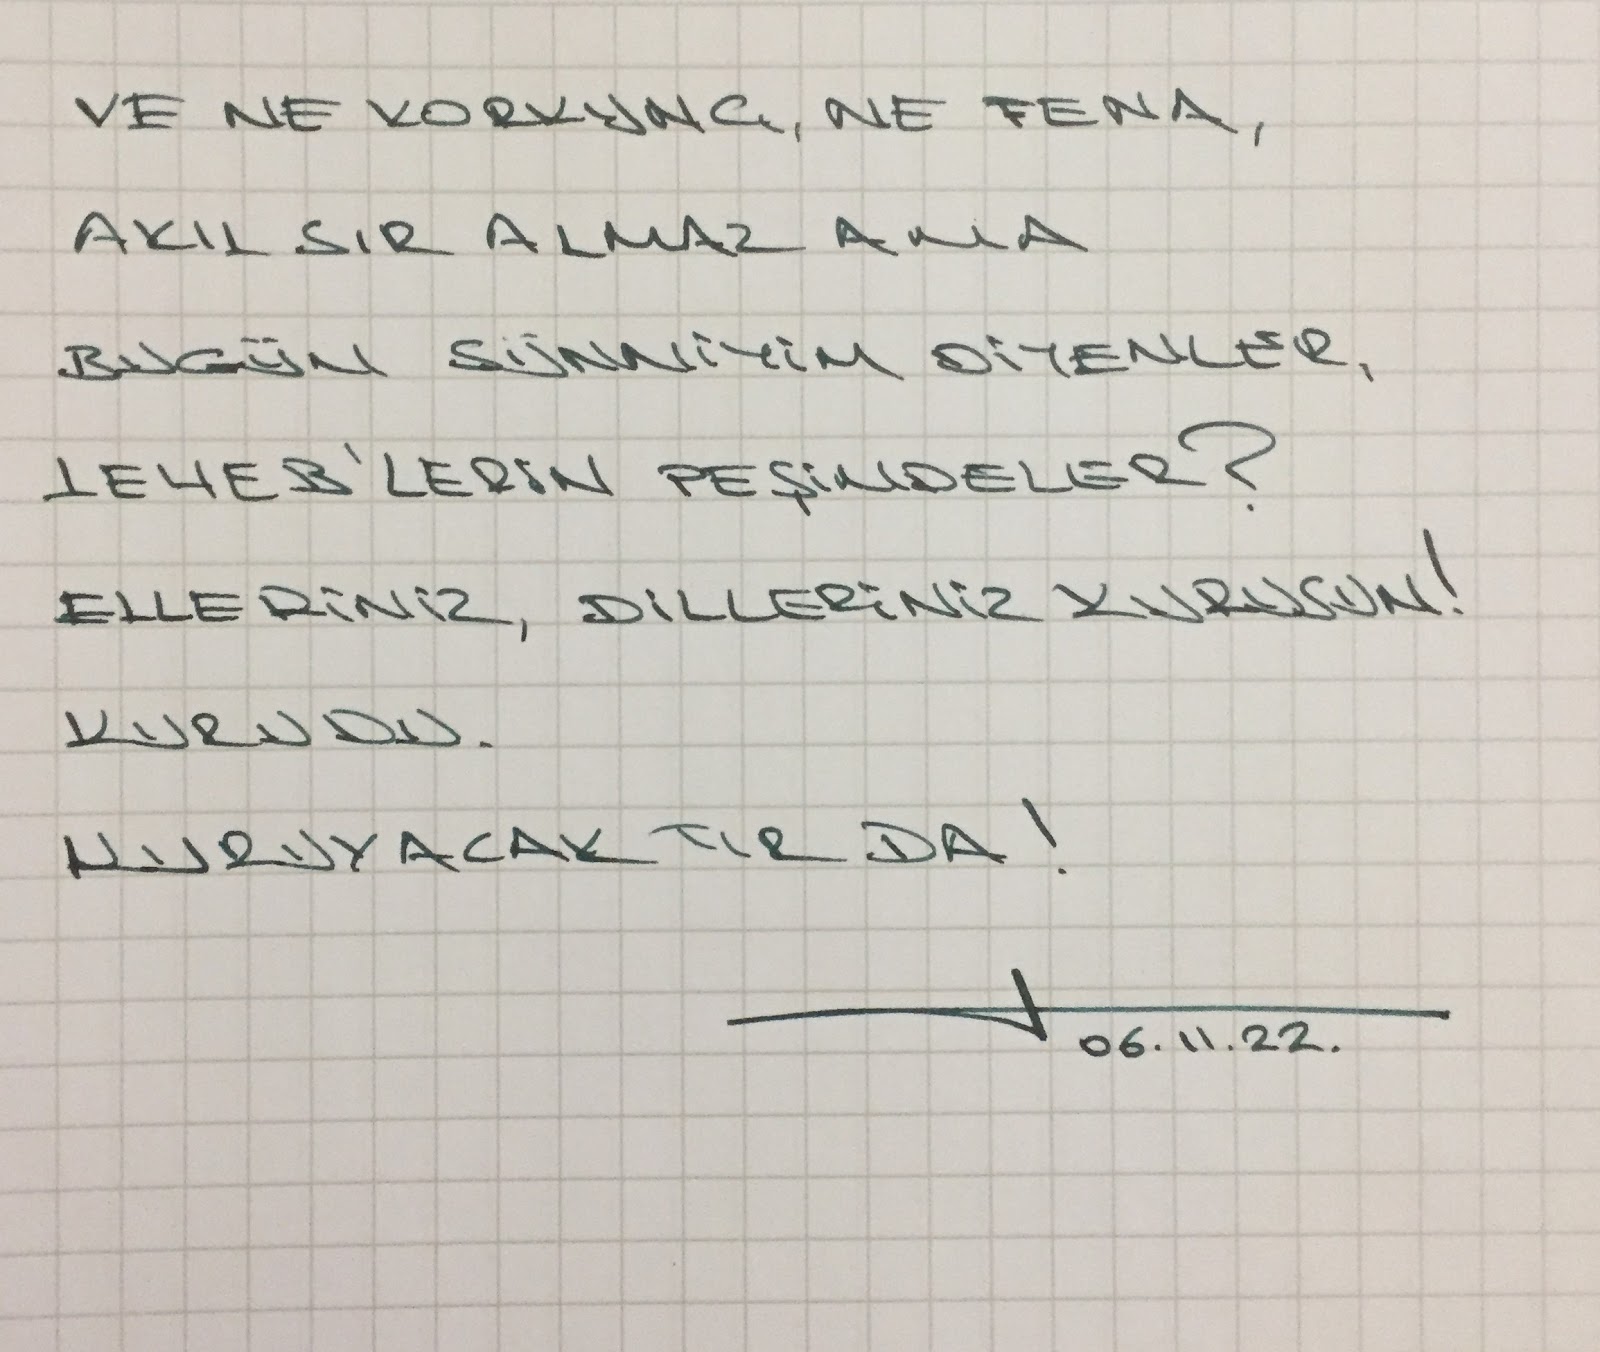 VE NE KORKUNÇ, NE FENA,
AKIL SIR ALMAZ AMA
BUGÜN SÜNNİYİM DİYENLER,
LEHEB'LERİN PEŞİNDELER?
ELLERİNİZ, DİLLERİNİZ KURUSUN!
KURUDU.
KURUYACAKTIR DA!
06.11.22.